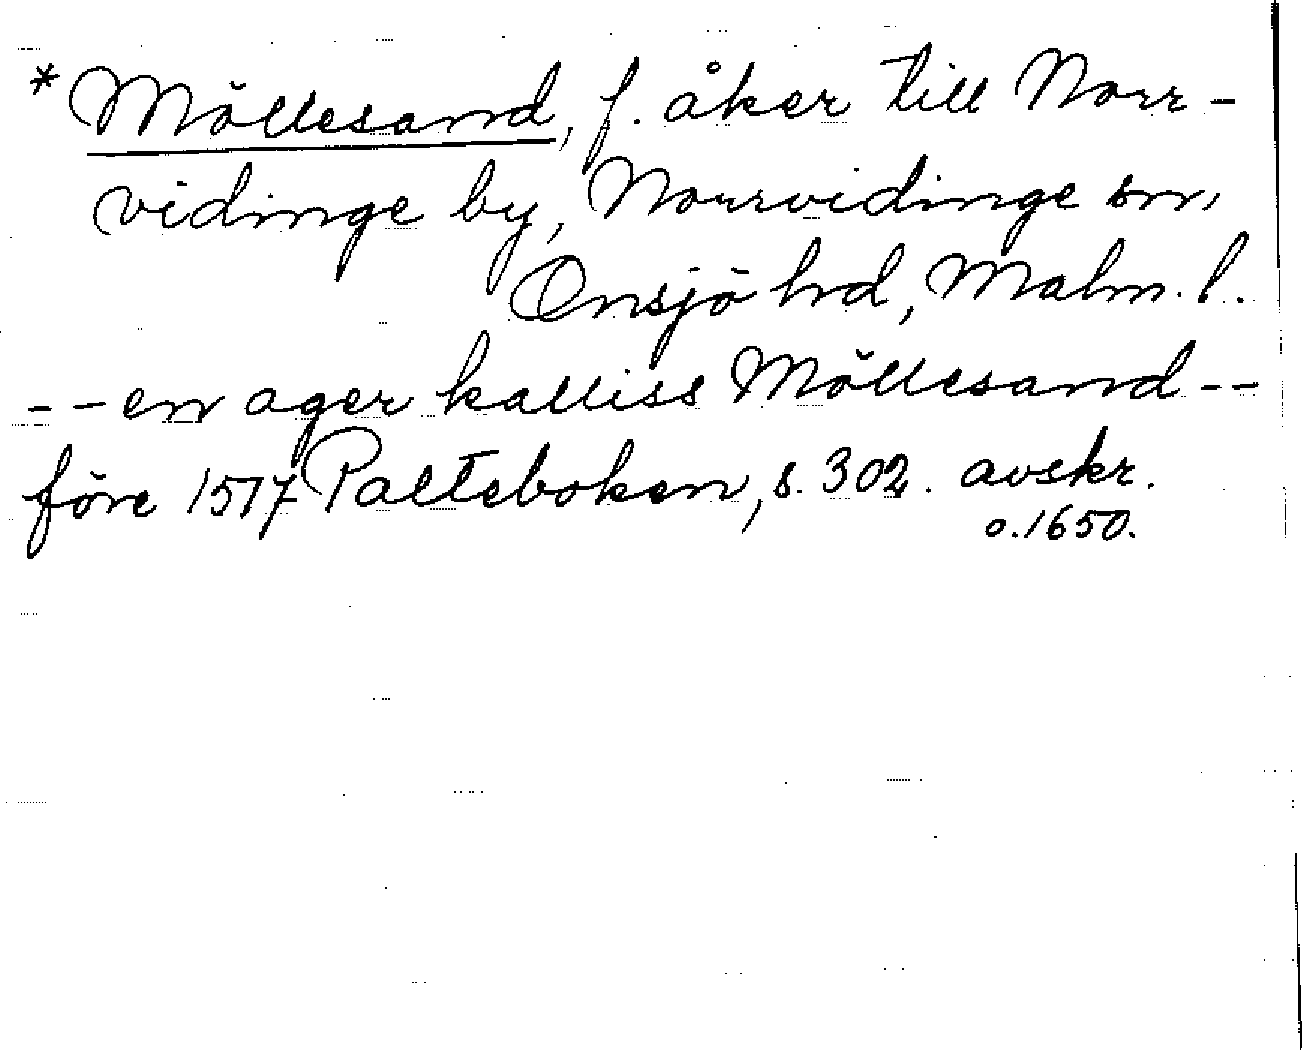 *Möllesand, f. åker till Norr-
vidinge by, Norrvidinge sn,
Onsjö hrd, Malm. l.
-- en ager kalliss Möllesand --
före 1517 Palteboken, s. 302. avskr.
o. 1650.